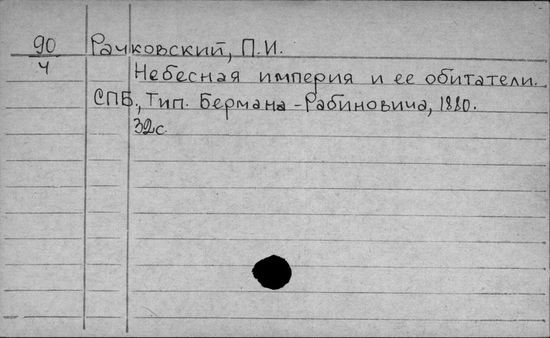 90 Рачковский, П.И.
4 Небесная империя и ее обитатели.
СПБ, Тип. Бермана-Рабиновича, 1880.
32с.